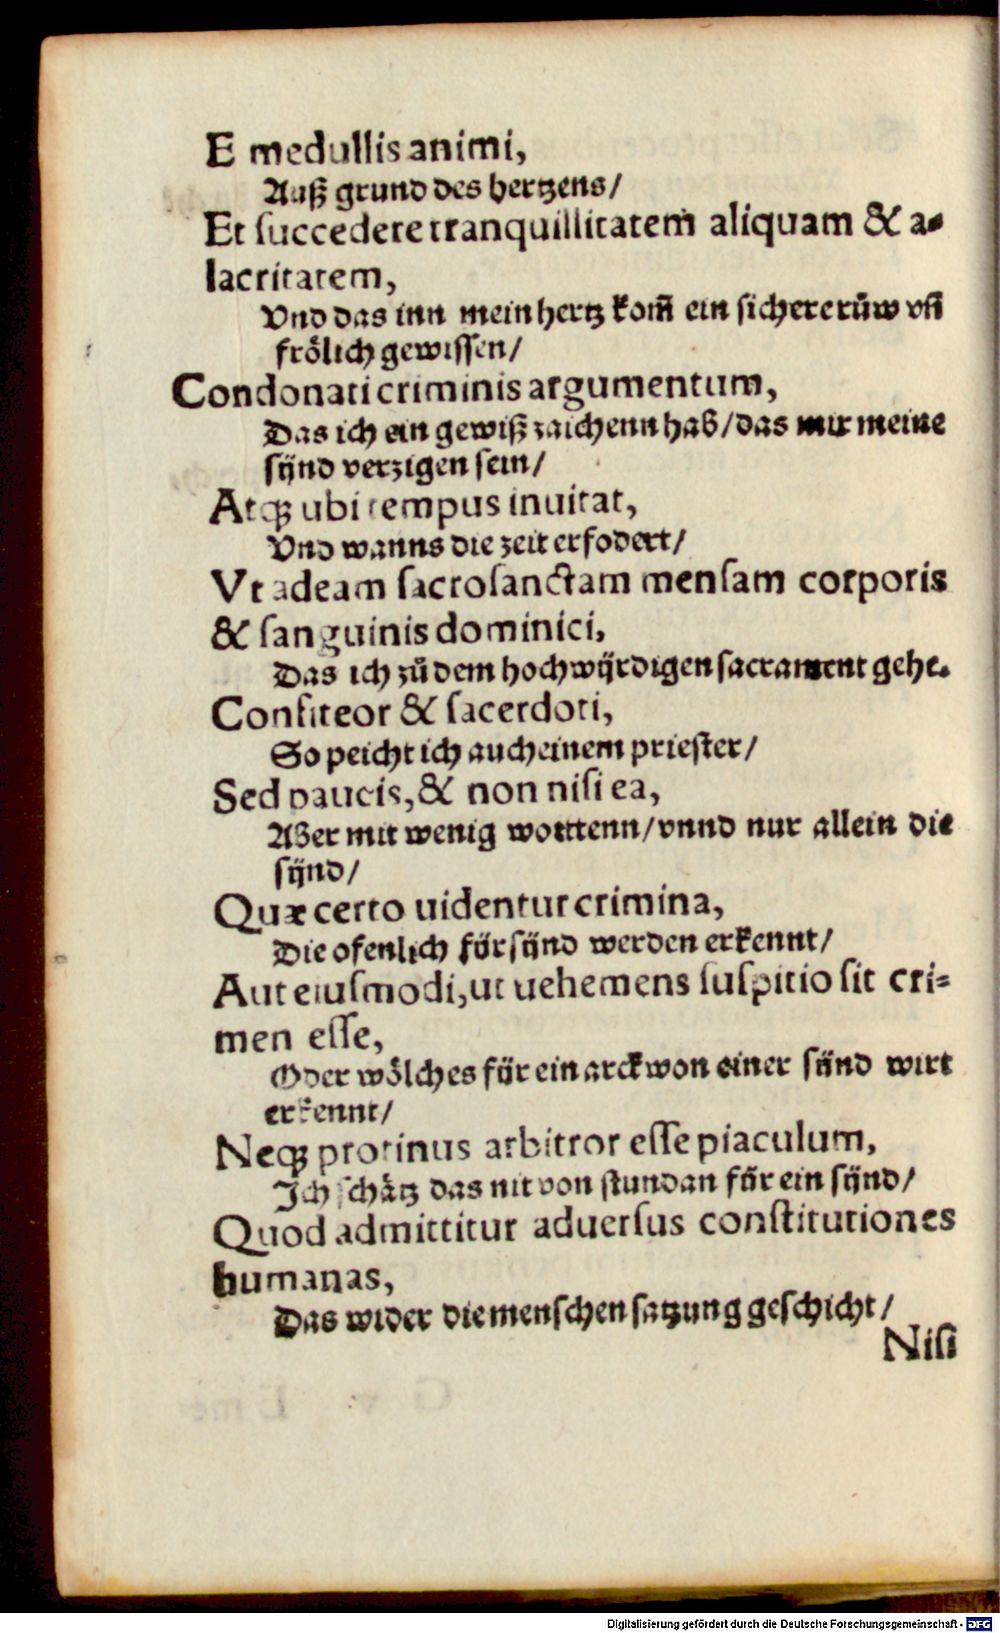 E medullis animi,
Auß grund des hertzens/
Et ſuccedere tranquillitatem aliquam & a-
lacritatem,
Vnd das inn mein hertz kom̃ ein ſichere rüw vñ
frölich gewiſſen/
Condonati criminis argumentum,
Das ich ein gewiß zaichenn hab/das mir meine
ſünd verzigen ſein/
Atqꝫ ubi tempus inuitat,
Vnd wanns die zeit erfodert/
Vt adeam ſacroſanctam menſam corporis
& ſanguinis dominici,
Das ich zů dem hochwÿrdigen ſacrament gehe.
Confiteor & ſacerdoti,
So peicht ich auch einem prieſter/
Sed paucis, & non niſi ea,
Aber mit wenig worttenn/vnnd nur allein die
ſÿnd/
Quæ certo uidentur crimina,
Die ofenlich für ſÿnd werden erkennt/
Aut eiuſmodi, ut uehemens ſuſpitio ſit cri-
men eſſe,
Oder wölches für ein arckwon einer ſünd wirt
erkennt/
Neqꝫ protinus arbitror eſſe piaculum,
Ich ſchätz das nit von ſtundan für ein ſÿnd/
Quod admittitur aduerſus conſtitutiones
humanas,
Das wider die menſchen ſatzung geſchicht/
Niſi
Digitalisierung gefördert durch die Deutsche Forschungsgemeinschaft - DFG